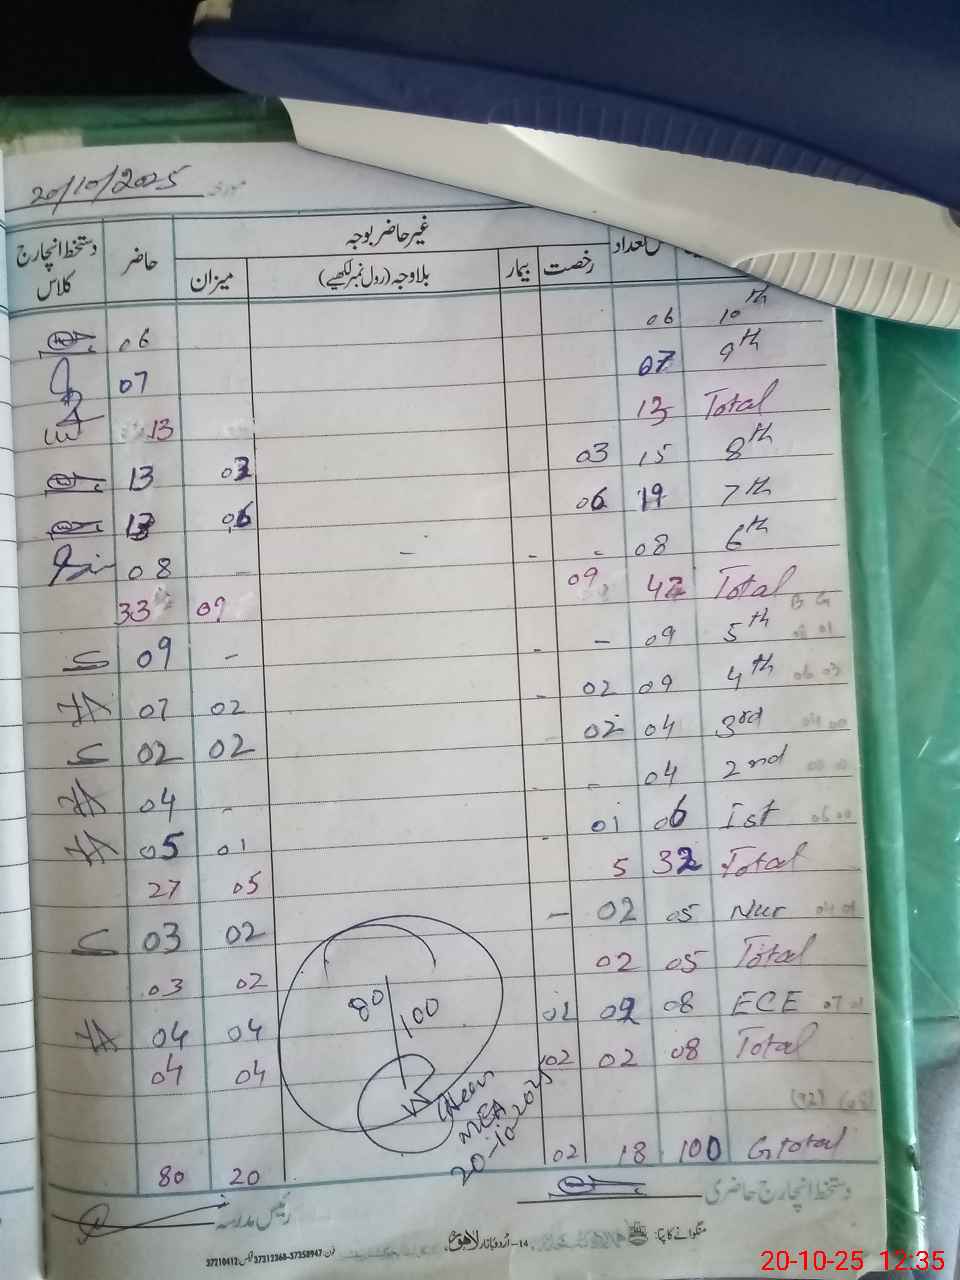 20/10/2025
دستخط انچارج کلاس | حاضر | غیر حاضر بوجہ | تعداد
میزان | بلاوجہ (رول نمبر لکھیے) | بیمار | رخصت
06 06 10th
07 07 9th
13 13 Total
13 03 03 15 8th
13 06 06 19 7th
08 - - - - 08 6th
33 09 09 42 Total B G
09 - - - 09 5th 01
07 02 - 02 09 4th 06 03
02 02 - 02 04 3rd 04 00
04 - - - 04 2nd
05 01 - 01 06 Ist 06 00
27 05 5 32 Total
03 02 - 02 05 Nur 04 01
03 02 02 05 Total
04 04 02 02 08 ECE 07 01
04 04 02 02 08 Total
80/100
MEA
20-10-2025
(92)
80 20 02 18 100 G total
رئیس مدرسہ
دستخط انچارج حاضری
منگوانے کا پتہ:
14-اُردو بازار لاہور
فون: 37312368-37358947 37210412
20-10-25 12:35